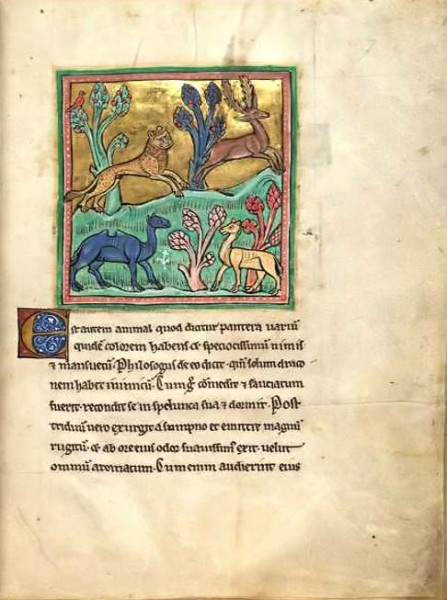 Est autem animal quod dicitur pantera variū
quidē colorem habens & speciocissimū nimis
& mansuetū. Philosogus de eo dicit. qm̄ solum draco
nem habet inimicū. Cumq; comederit & sauciatum
fuerit. recondit se in spelunca sua & dormit. Post
triduū vero exurgit a sumpno et emittit magnū
rugitū. & ab ore eius odor suavissim' exit. velut
omniū aromatum. Cum enim audierint eius